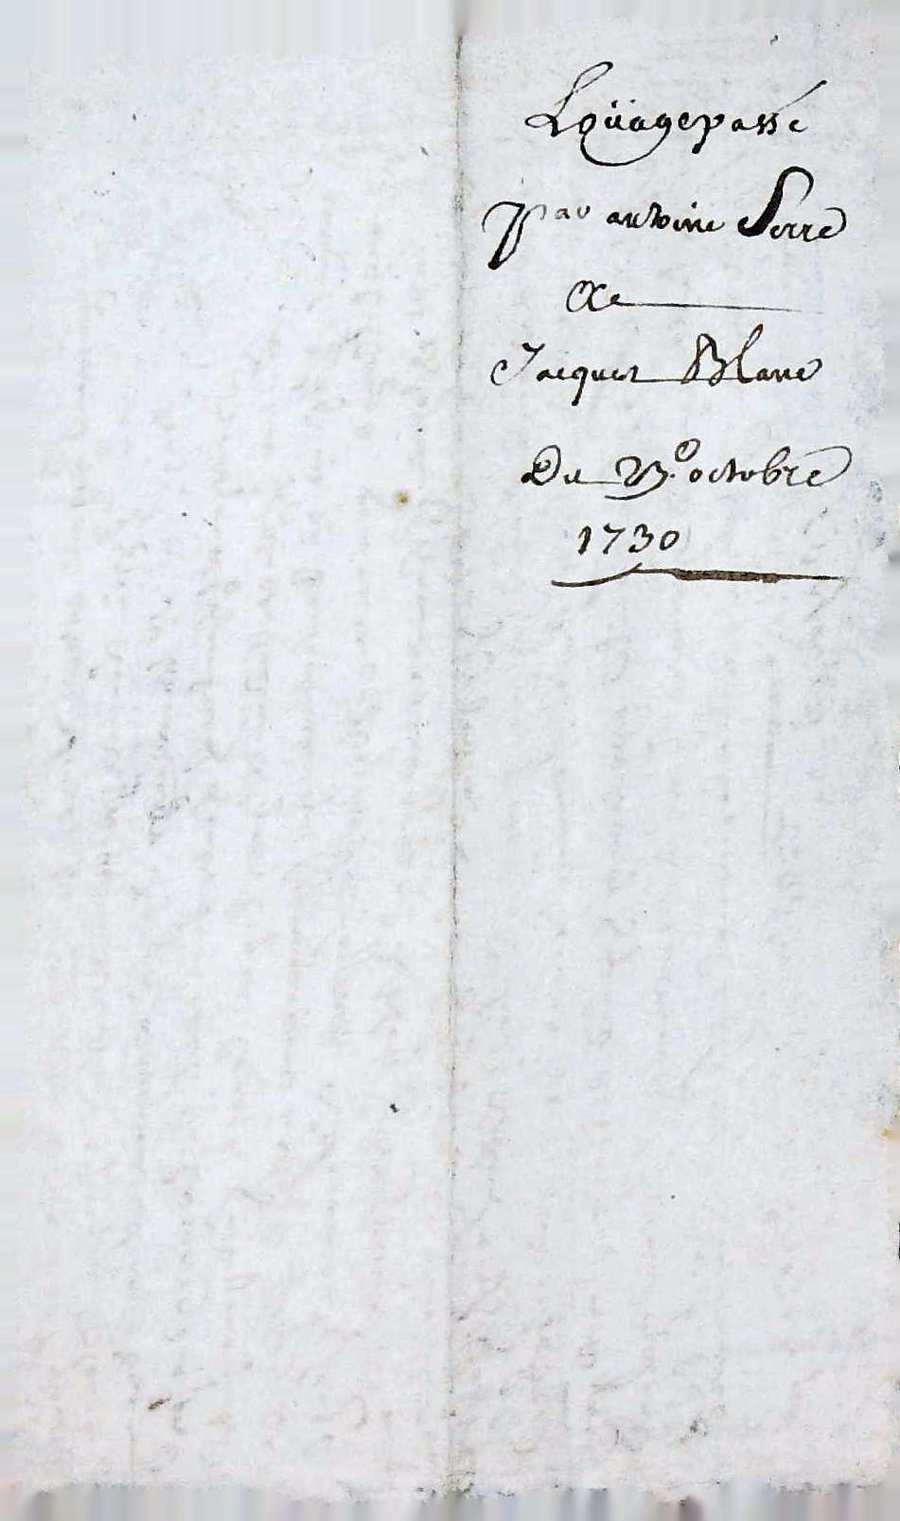 Loüage passé
par antoine Serre
A
Jacques Blanc
Du octobre
1730